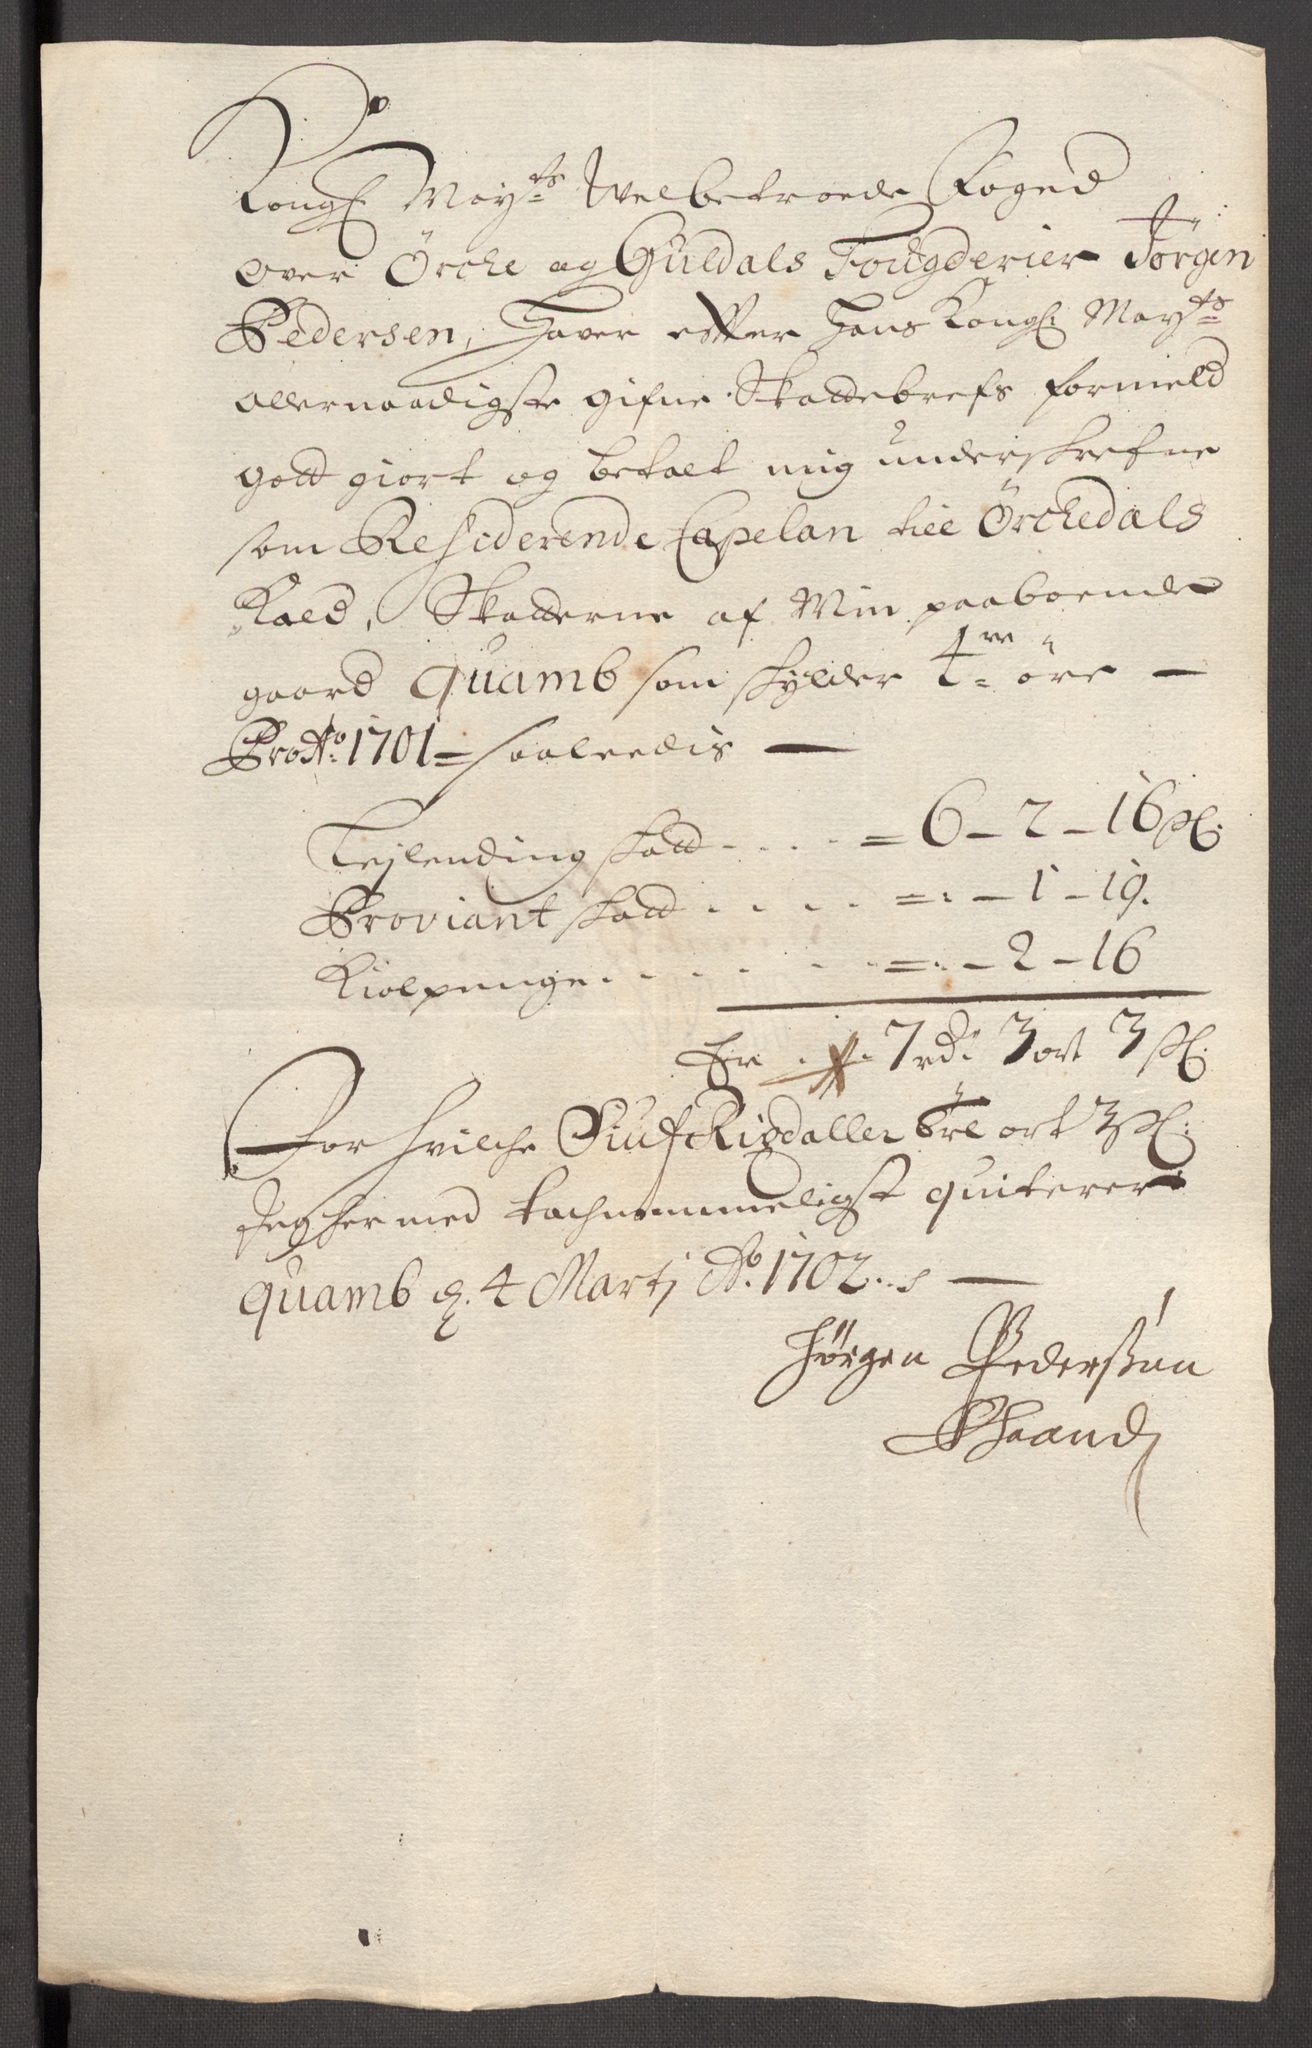 Kongl Mayts Velbetroede Foged
over Örche og Guldals Fougderier Jörgen
Pedersen, Hafver efter Hans Kongl: Mayts
allernaadigste gifne Skattebrefs formeld
gott giort og betalt mig underskrefne
som Residerende Capelan till Örchedals
Kald, Skatterne af Min paaboende
gaard Quamb som skylder öre —
Pro Ao: 1701 = saaledis —
Lejlending skatt . . . . = 6 – 2 – 16 sl:
Proviant skatt . . . . = : – 1 – 19.
Kiolpenge . . . . . . = : – 2 – 16
Er . . 7 rd: 3 ort 3 sl:
For hvilche Siuf Rigsdaller Tre ort 3 sl:
Jeg hermed tachnemmeligst quiterer
Quamb d. 4 Martj Ao. 1702. —
Jörgen Pederssen